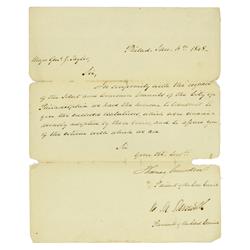 Philad. Jan. 6th 1848.
Major Genl. Z. Taylor,
Sir,
In conformity with the request
of the Select and Common Councils of the City of
Philadelphia we have the honour to transmit to
you the enclosed resolutions, which were unani-
mously adopted by them, and to assure you
of the esteem with which we are
Sir
Your Obt. Servts.
President of the Common Council
President of the Select Council